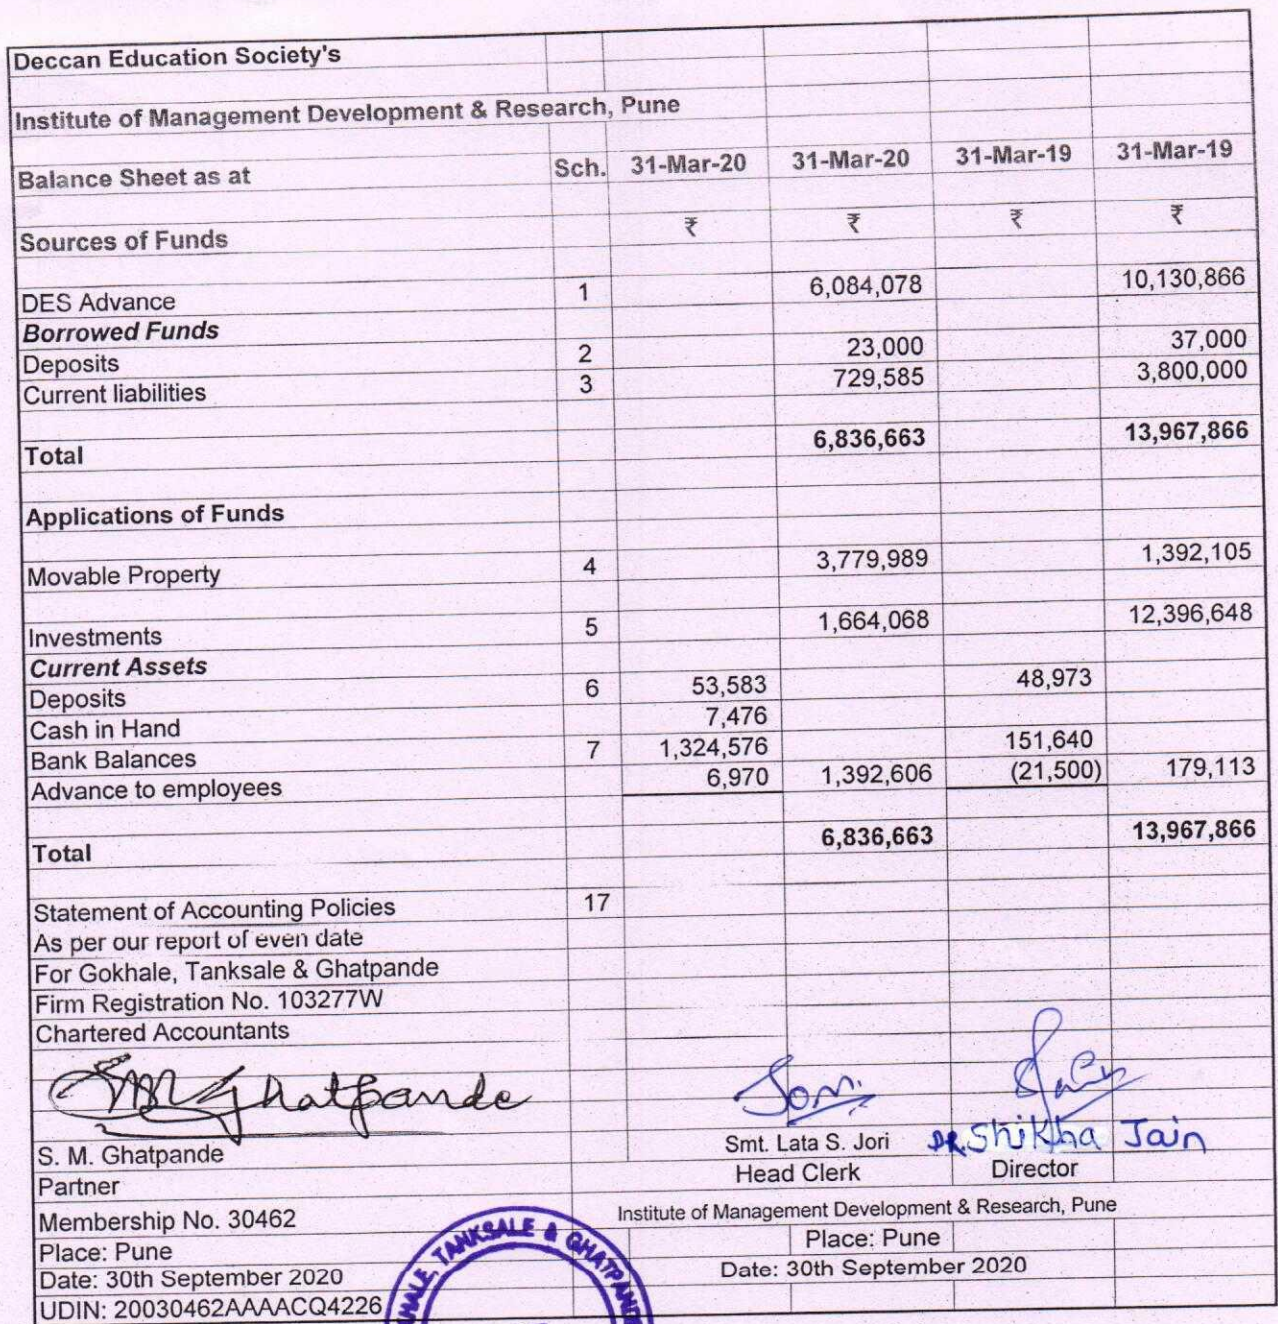 Deccan Education Society's
Institute of Management Development & Research, Pune
Balance Sheet as at Sch. 31-Mar-20 31-Mar-20 31-Mar-19 31-Mar-19
Sources of Funds ₹ ₹ ₹ ₹
DES Advance 1 6,084,078 10,130,866
Borrowed Funds
Deposits 2 23,000 37,000
Current liabilities 3 729,585 3,800,000
Total 6,836,663 13,967,866
Applications of Funds
Movable Property 4 3,779,989 1,392,105
Investments 5 1,664,068 12,396,648
Current Assets
Deposits 6 53,583 48,973
Cash in Hand 7,476
Bank Balances 7 1,324,576 151,640
Advance to employees 6,970 1,392,606 (21,500) 179,113
Total 6,836,663 13,967,866
Statement of Accounting Policies 17
As per our report of even date
For Gokhale, Tanksale & Ghatpande
Firm Registration No. 103277W
Chartered Accountants
SMGhatpande Jori Jain
S. M. Ghatpande Smt. Lata S. Jori DR. Shikha Jain
Partner Head Clerk Director
Membership No. 30462 Institute of Management Development & Research, Pune
Place: Pune Place: Pune
Date: 30th September 2020 Date: 30th September 2020
UDIN: 20030462AAAACQ4226
TANKSALE &